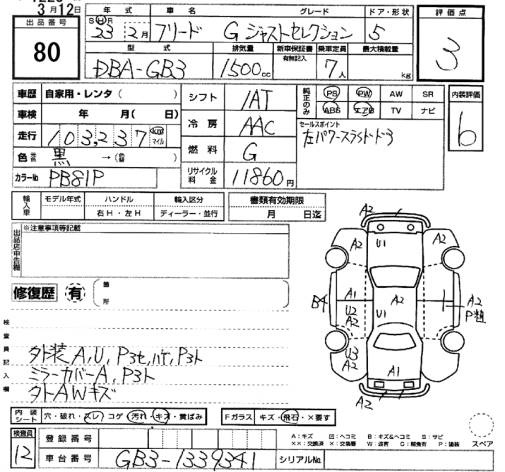 3月12日
出品番号
80
年式 車名 グレード ドア・形状
SHR 23年2月 フリード G ジャストセレクション 5
型式 排気量 新車保証書 乗車定員 最大積載量
有無記入
DBA-GB3 1500cc 7人 kg
評価点
3
車歴 自家用・レンタ( )
車検 年 月( 日)
走行 103,237 km マイル
色 黒 → ( )
カラーNo PB81P
シフト IAT
冷房 AAC
燃料 G
リサイクル料金 11860円
純正のみ PS PW AW SR
ABS エアB TV ナビ
セールスポイント
左パワースライドドア
内装評価
6
輸入車 モデル年式 ハンドル 輸入区分
右H・左H ディーラー・並行
書類有効期限
月 日迄
出品店申告欄
※注意事項等記載
修復歴 有 箇所
検査員記入欄
外装A,U,P3セ,ハゲ,P3ト
ミラーカバーA,P3ト
タトAWキズ
A2 A2
U1
A2 A2
B4 A1 A2 A2
U2 U1 P粗
A2
U3 A1
A2 A2
A2
内装シート 穴・破れ・スレ・コゲ 汚れ・キズ・黄ばみ
Fガラス キズ・飛石・×要す
スペア
A：キズ 凹：ヘコミ B：キズ&ヘコミ S：サビ
検査員 12
登録番号
車台番号 GB3-1339341
シリアルNo.